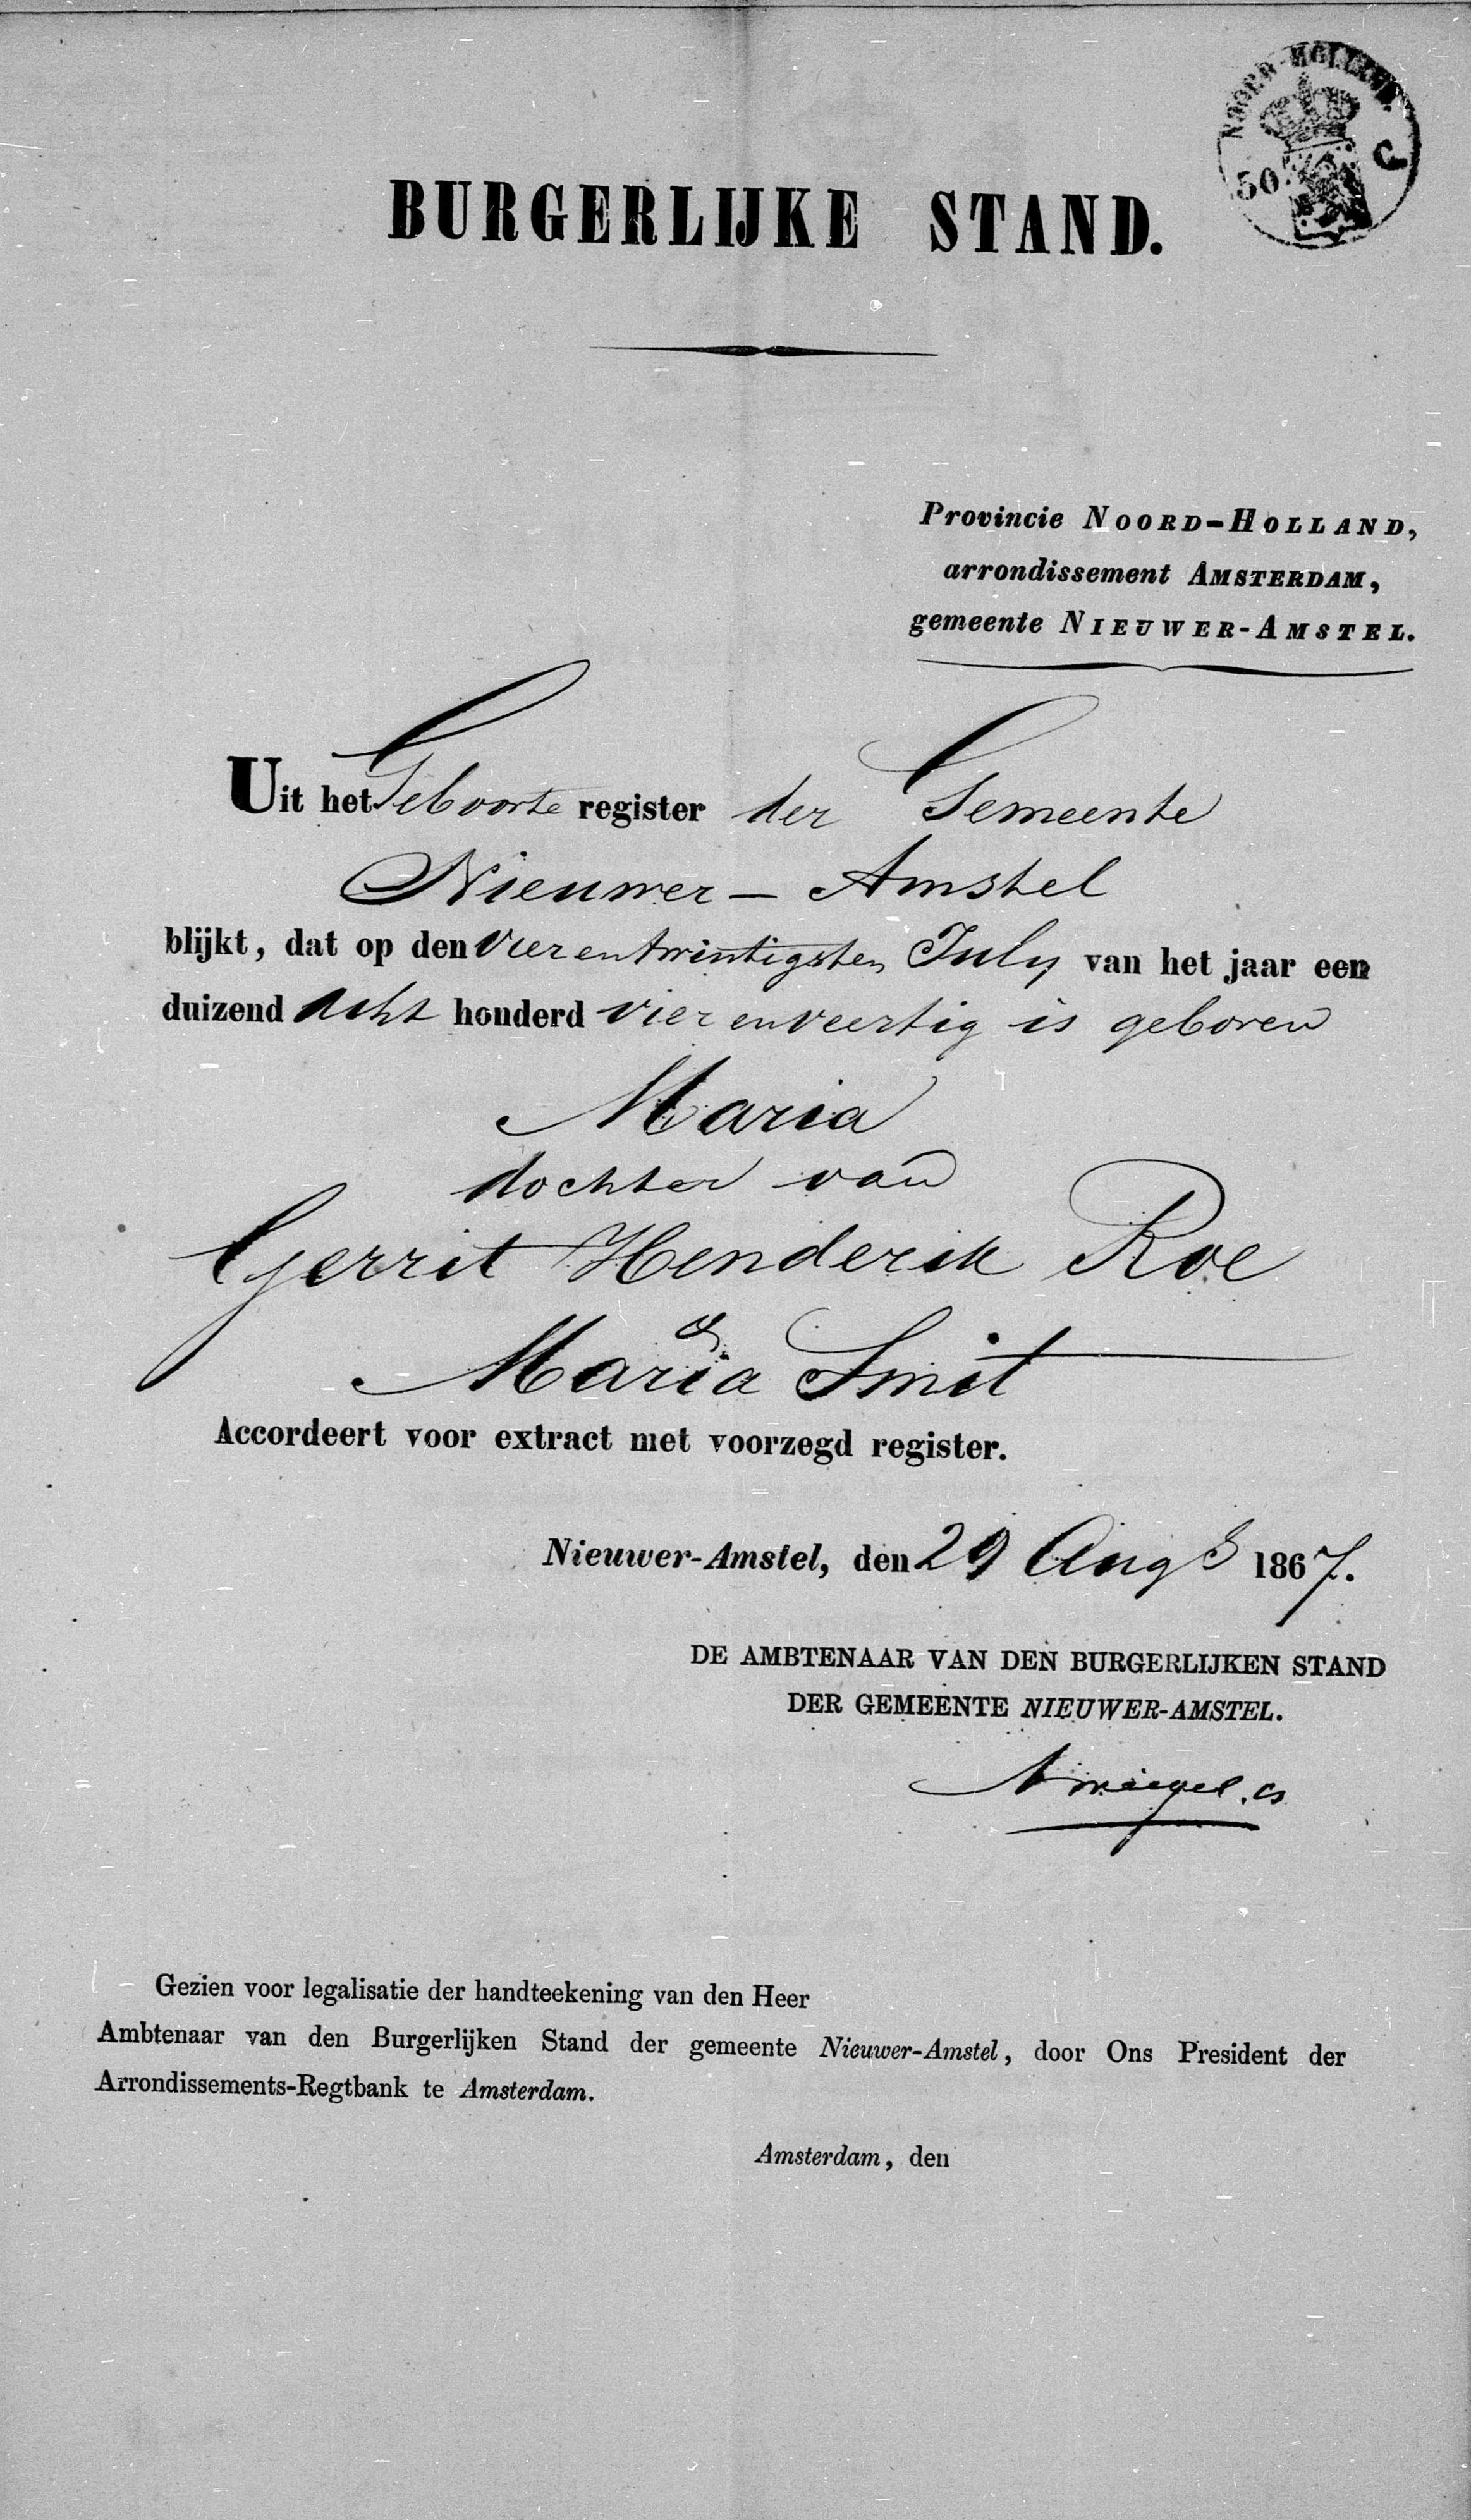 NOORD-HOLLAND.
50 C
BURGERLIJKE STAND.
Provincie NOORD-HOLLAND,
arrondissement AMSTERDAM,
gemeente NIEUWER-AMSTEL.
Uit het Geboorte register der Gemeente
Nieuwer - Amstel
blijkt, dat op den Vierentwintigsten July van het jaar een
duizend Acht honderd vier en veertig is geboren
Maria
dochter van
Gerrit Henderik Roe
&
Maria Smit
Accordeert voor extract met voorzegd register.
Nieuwer-Amstel, den 29 Aug s 1867.
DE AMBTENAAR VAN DEN BURGERLIJKEN STAND
DER GEMEENTE NIEUWER-AMSTEL.
Gezien voor legalisatie der handteekening van den Heer
Ambtenaar van den Burgerlijken Stand der gemeente Nieuwer-Amstel, door Ons President der
Arrondissements-Regtbank te Amsterdam.
Amsterdam, den